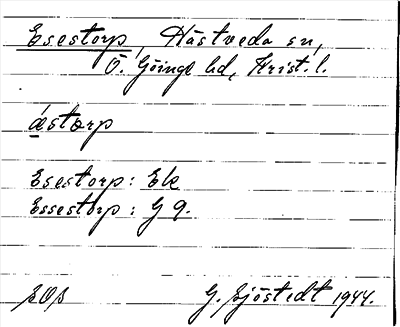 Esestorp, Hästveda sn,
Ö. Göinge hd, Krist. l.
æstorp
Esestorp: Ek
Essestorp: G 9.
SOS G. Sjöstedt 1944.